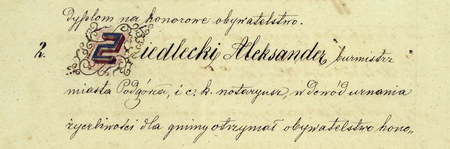 dyplom na honorowe obywatelstwo.
2. Siedlecki Aleksander, burmistrz
miasta Podgórza, i c. k. notaryusz, w dowód uznania
życzliwości dla gminy otrzymał obywatelstwo hono-